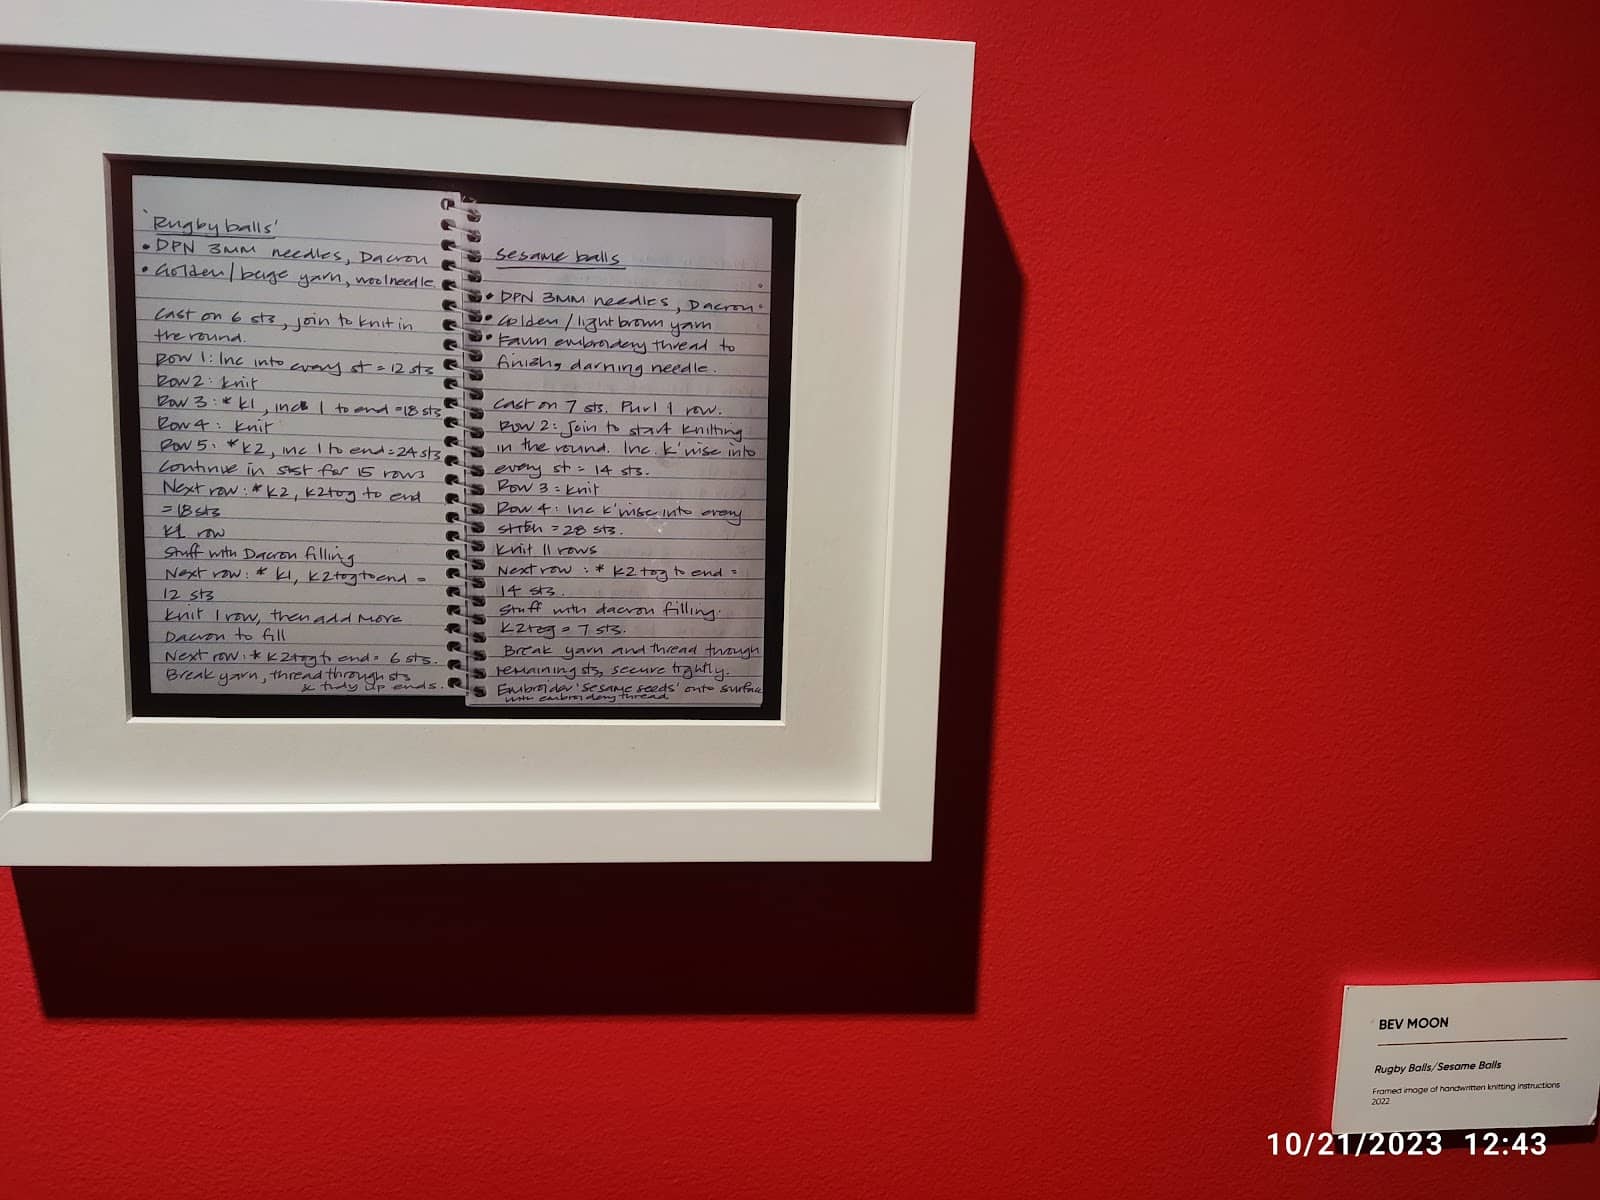 'Rugby balls'
• DPN 3MM needles, Dacron
• Golden/beige yarn, woolneedle
Cast on 6 sts, join to knit in
the round.
Row 1: Inc into every st = 12 sts
Row 2: Knit
Row 3: * K1, inc 1 to end = 18 sts
Row 4: Knit
Row 5: * K2, inc 1 to end = 24 sts
Continue in st st for 15 rows
Next row: * K2, K2tog to end
= 18 sts
K1 row
Stuff with Dacron filling
Next row: * K1, K2tog to end =
12 sts
Knit 1 row, then add more
Dacron to fill
Next row: * K2tog to end = 6 sts.
Break yarn, thread through sts
& tidy up ends.
Sesame balls
• DPN 3MM needles, Dacron
• Golden/light brown yarn
• Fawn embroidery thread to
finish, darning needle.
Cast on 7 sts. Purl 1 row.
Row 2: Join to start knitting
in the round. Inc. k'wise into
every st = 14 sts.
Row 3 = Knit
Row 4: Inc k'wise into every
stitch = 28 sts.
Knit 11 rows
Next row : * K2 tog to end =
14 sts.
Stuff with dacron filling.
K2tog = 7 sts.
Break yarn and thread through
remaining sts, secure tightly.
Embroider 'sesame seeds' onto surface
with embroidery thread
BEV MOON
Rugby Balls/Sesame Balls
Framed image of handwritten knitting instructions
2022
10/21/2023 12:43